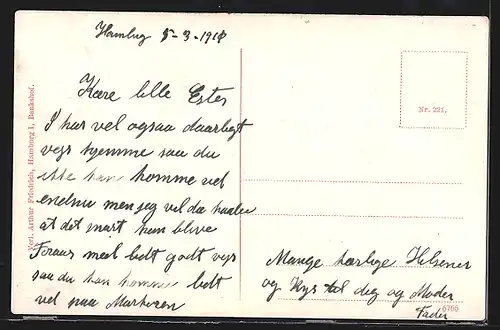 Hamburg 8-3-1918
Kære lille Ester
I har vel ogsaa daarligt
vejr hjemme saa du
ikke kan komme vel
endnu men jeg vil da haabe
at det snart kan blive
saa du kan komme lidt
vel paa Marken
Mange kærlige Hilsener
og Kys til dig og Moder
Fader
Nr. 221.
6766
Verl. Arthur Friedrich, Hamburg 1, Bankshof.